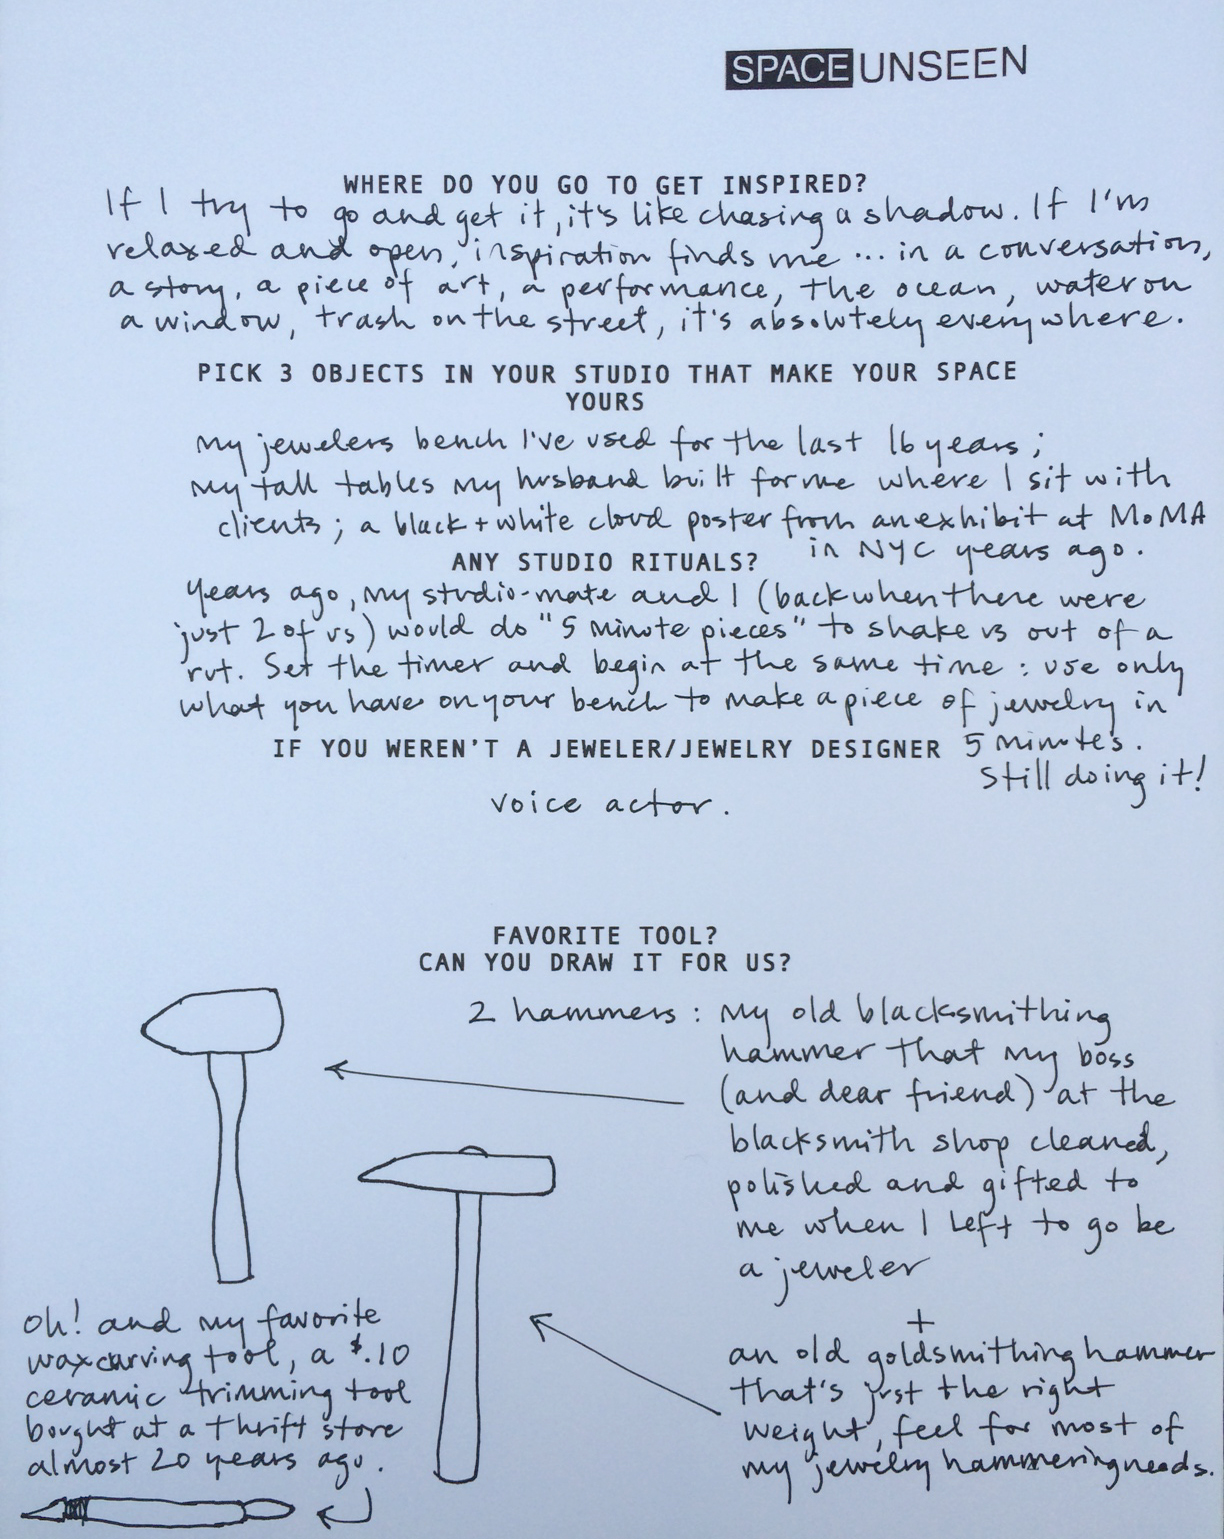 SPACE UNSEEN
WHERE DO YOU GO TO GET INSPIRED?
If I try to go and get it, it's like chasing a shadow. If I'm
relaxed and open, inspiration finds me ... in a conversation,
a story, a piece of art, a performance, the ocean, water on
a window, trash on the street, it's absolutely everywhere.
PICK 3 OBJECTS IN YOUR STUDIO THAT MAKE YOUR SPACE
YOURS
My jewelers bench I've used for the last 16 years;
My tall tables my husband built for me where I sit with
clients; a black + white cloud poster from an exhibit at MoMA
in NYC years ago.
ANY STUDIO RITUALS?
Years ago, my studio-mate and I (back when there were
just 2 of us) would do "5 minute pieces" to shake us out of a
rut. Set the timer and begin at the same time: use only
what you have on your bench to make a piece of jewelry in
5 minutes.
Still doing it!
IF YOU WEREN'T A JEWELER/JEWELRY DESIGNER
voice actor.
FAVORITE TOOL?
CAN YOU DRAW IT FOR US?
2 hammers: My old blacksmithing
hammer that my boss
(and dear friend) at the
blacksmith shop cleaned,
polished and gifted to
me when I left to go be
a jeweler
+
an old goldsmithing hammer
that's just the right
weight, feel for most of
my jewelry hammering needs.
Oh! and my favorite
wax carving tool, a $.10
ceramic trimming tool
bought at a thrift store
almost 20 years ago.